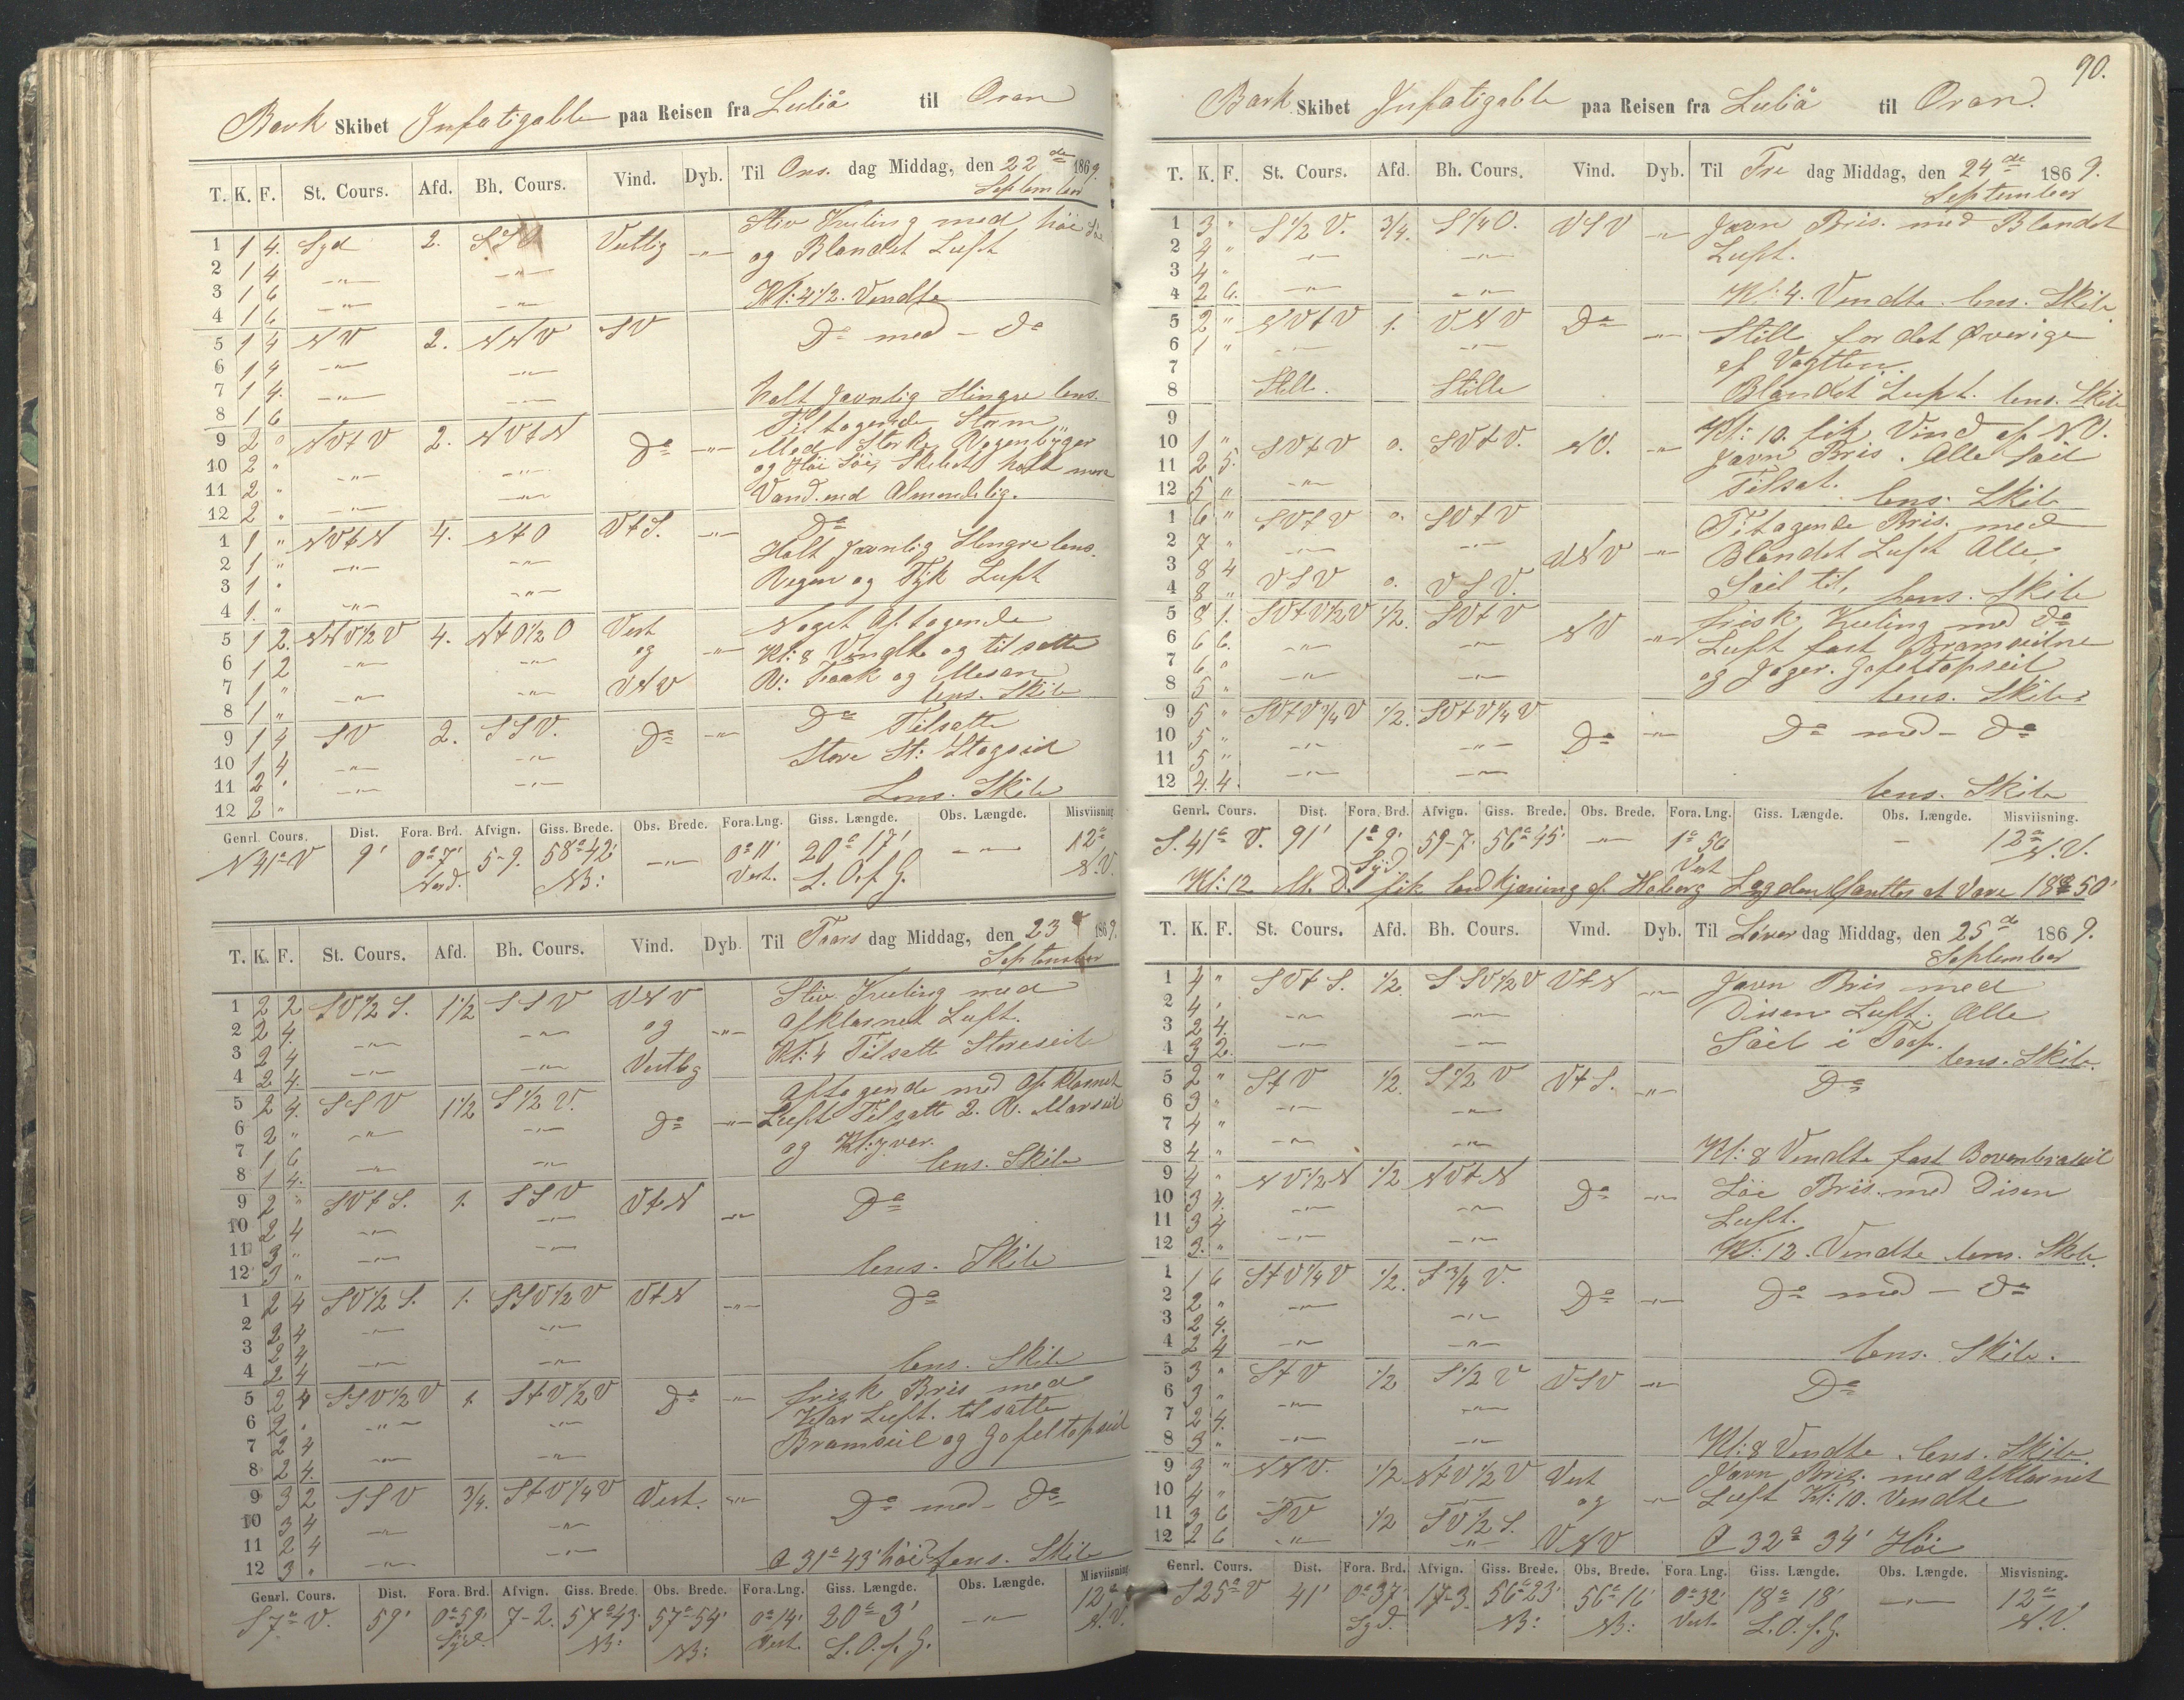 Bark Skibet Infatigable paa Reisen fra Luliö til Oran
T. K. F. St. Cours. Afd. Bh. Cours. Vind. Dyb. Til Ons. dag Middag, den 22de 1869.
September
1 1 4. Syd 2. SSO Vestlig -"- Stiv Kuling med høi Sø
2 1 4 -"- -"- og Blandet Luft
3 1 6 -"- -"- Kl: 4 1/2. Vendte
4 1 6
5 1 4 NV 2. NNV SV Do med - Do
6 1 4 -"- -"-
7 1 4. -"- -"- holt Jævnlig Slingre lens.
8 1 6 Tiltagende Storm
9 2 o NVtV 2. NVtN Do -"- Med Sterke Regenbyger
10 2 " -"- -"- og Høi Søe, Skibet holt mere
11 2 " -"- -"- Vand end Almendelig.
12 2 "
1 1 " NVtN 4. NtO VtS. -"- Do
2 1 " -"- -"- Holt Jævnlig Slengre lens.
3 1 " -"- Regen og Tyk Luft
4 1. " -"-
5 1 2. NNV1/2V 4. NtO1/2O Vest Noget Aftagende
6 1 2 -"- -"- og -"- Kl: 8 Vendte og til satte
7 1 " -"- -"- VNV R: Fook og Mesan
8 1 " lens. Skib
9 1 4 SV 2. SSV. Do -"- Do Tilsatte
10 1 4 -"- -"- Store St: Stagseil
11 2 " -"- -"-
12 2 " Lens. Skib
Genrl. Cours. Dist. Fora. Brd. Afvign. Giss. Brede. Obs. Brede. Fora. Lng. Giss. Længde. Obs. Længde. Misviisning
N 41° V 9' 0°7' 5-9. 58°42' -"- 0°11' 20° 17' -"- 12°
Nord. NB: Vest. L. O. f. G. N.V.
T. K. F. St. Cours. Afd. Bh. Cours. Vind. Dyb. Til Tors dag Middag, den 23 1869.
September
1 2 2 SV1/2S. 1 1/2 SSV VNV Stiv Kuling med
2 2 4. -"- -"- og -"- Afklarnet Luft.
3 2 4 -"- -"- Vestlig Kl: 4 Tilsatte Storeseil
4 2 4.
5 2 4. SSV 1 1/2 S1/2V. Do -"- Aftagende med Afklarnet
6 2 " -"- -"- Luft Tilsatte 2. R. Marseil
7 1 6 -"- -"- og Kl:yver.
8 1 4. lens. Skib
9 2 " SVtS. 1. SSV VtN -"- Do
10 2 4 -"- -"-
11 3 " -"- -"-
12 3 " lens. Skib
1 2 4 SV1/2S. 1. SSV1/2V VtN -"- Do
2 2 4 -"- -"-
3 2 4 -"- -"-
4 2 4 lens. Skib
5 2 4 SSV1/2V 1. StV1/2V Do -"- frisk Bris med
6 2 " -"- -"- Klar Luft. til satte
7 2 4 -"- -"- Bramseil og Gafeltopseil
8 2 4.
9 3 2 SSV 3/4. StV1/4V Vest. -"- Do med - Do
10 3 4 -"- -"-
11 2 4 -"- -"-
12 3 " 31° 43' høi lens. Skib
Genrl. Cours. Dist. Fora. Brd. Afvign. Giss. Brede. Obs. Brede. Fora. Lng. Giss. Længde. Obs. Længde. Misviisning
S 7° V. 59' 0°59' 7-2. 57°43' 57°54' 0°14' 20° 3' -"- 12°
Syd. NB: NB: Vest. L. O. f. G. N.V.
90.
Bark Skibet Infatigable paa Reisen fra Luliö til Oran.
T. K. F. St. Cours. Afd. Bh. Cours. Vind. Dyb. Til Fre dag Middag, den 24de 1869.
September
1 3 " S1/2V. 3/4. S1/4O. VSV -"- Jævn Bris. med Blandet
2 4 " -"- -"- Luft.
3 4 "
4 2 6. -"- -"- Kl: 4. Vendte. lens. Skib.
5 2 " NVtV 1. VNV Do -"- Still for det Øverige
6 1 " -"- -"- af Vagtten.
7
8 Stille. Stille Blandet Luft. lens. Skib
9 Kl: 10. fik Vind af NO.
10 1 " SVtV o. SVtV. NO. -"- Jævn Bris. Alle Seil
11 2 5.
12 5 " -"- Tilsat. lens. Skib
1 6 " SVtV o. SVtV Titagende Bris. med
2 7 " -"- -"- VNV -"- Blandet Luft Alle
3 8 4 VSV o. VSV. Seil til,
4 8 " lens. Skib
5 8 1. SVtV1/2V 1/2. SVtV NV -"- frisk Kuling med Do
6 6 6. -"- -"- Luft fast Bramseilne
7 6 " -"- -"- og Jager. Gafeltopseil
8 5 " lens. Skib.
9 5 " SVtV1/4V 1/2. SVtV1/4V Do -"- Do med - Do
10 5 " -"- -"-
11 5 "
12 4. 4. -"- -"- lens. Skib
Genrl. Cours. Dist. Fora. Brd. Afvign. Giss. Brede. Obs. Brede. Fora. Lng. Giss. Længde. Obs. Længde. Misviisning.
S. 41° V. 91' 1°9' 59-7. 56°45' -"- 1°50 - 12°
Syd. Vest N.V.
Kl: 12 M. D. fik land kjæning af Hoborg 18°50'
T. K. F. St. Cours. Afd. Bh. Cours. Vind. Dyb. Til Løver dag Middag, den 25de 1869.
September
1 4 " SVtS. 1/2. SSV1/2V VtN -"- Jævn Bris med
2 4. -"- -"- Disen Luft. Alle
3 2 4. Seil i Top.
4 3 2. -"- -"- lens. Skib.
5 2 " StV 1/2. S1/2V VtS. -"- Do
6 3 " -"- -"-
7 4 "
8 4 " -"- -"- Kl: 8 Vendte fast Bovenbraseil
9 4 " NV1/2N 1/2 NVtN Do -"- Løi Bris. med Disen
10 3 4. -"- -"- Luft.
11 3 4
12 3. " -"- -"- Kl: 12. Vendte lens. Skib.
1 1 6 StV1/4V 1/2. S3/4V. Do -"- Do med - Do
2 2 " -"-
3 2 4. -"-
4 2 4 -"- -"- lens. Skib.
5 3 " StV 1/2 S1/2V VSV -"- Do
6 3 " -"- -"-
7 2 4.
8 3 " -"- -"- Kl: 8 Vendte. lens. Skib
9 3 " NNV. 1/2 NtV1/2V Vest Jævn Bris. med Afklarnet
10 4 " og -"- Luft Kl: 10. Vendte
11 3 6 SV 1/2 SV1/2S.
12 2 6 -"- -"- VNV 32° 34' Høi
Genrl. Cours. Dist. Fora. Brd. Afvign. Giss. Brede. Obs. Brede. Fora. Lng. Giss. Længde. Obs. Længde. Misvisning.
S 25° V 41' 0°37' 17-3. 56°23' 56°16' 0°32' 18° 18' -"- 12°
Syd. NB: NB: Vest. L. O. f. G. N.V.